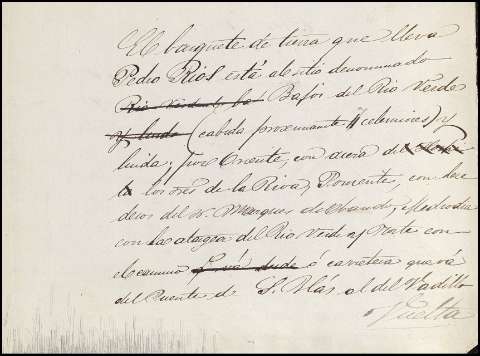 El banquete de tierra que lleva
Pedro Rios está al sitio denominado
Rio Verde Bajos del Rio Verde
y linda (cabula proximante 4 celemines) y
linda; por Oriente, con acera del
los ores de la Riva, Poniente, con
deros del Sr. Marques de Mediodia
con la atargea del Rio Verde y Norte con
el camino ó carretera que vá
del Puente de S. Blás al del Vadillo
Vuelta